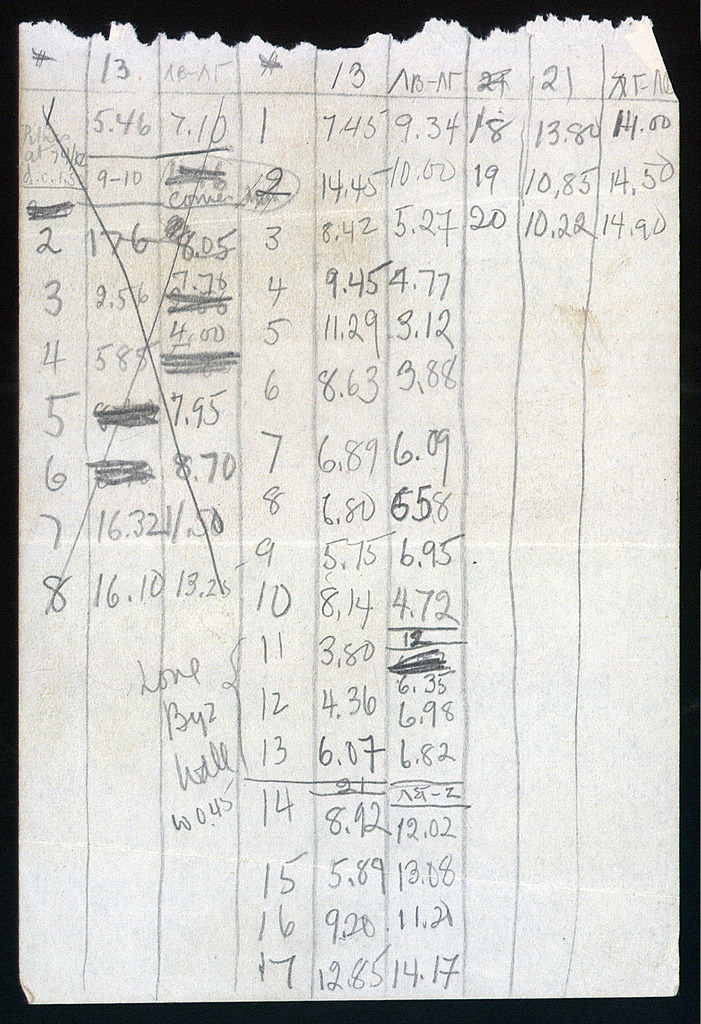 # 13. ΛΒ-ΛΓ # 13 ΛΒ-ΛΓ 21
1 5.46 7.10 1 7.45 9.34 18 13.80 14.00
9-10 corner 2 14.45 10.00 19 10,85 14.50
2 176 8.05 3 8.42 5.27 20 10.22 14.90
3 2.56 7.76 4 9.45 4.77
4.00 5 11.29 3.12
4 585 6 8.63 3,88
5 7.95 7 6.89 6.09
6 8.70 8 6.80 658
7 16.32 11.50 9 5.75 6.95
8 16.10 13.25 10 8,14 4.72
12
11 3,80 6.35
12 4.36 6.98
13 6.07 6.82
Byz
wall
w 0.45
21
14 8.92 12.02
15 5.89 13.08
16 9.20 11.21
17 12.85 14.17